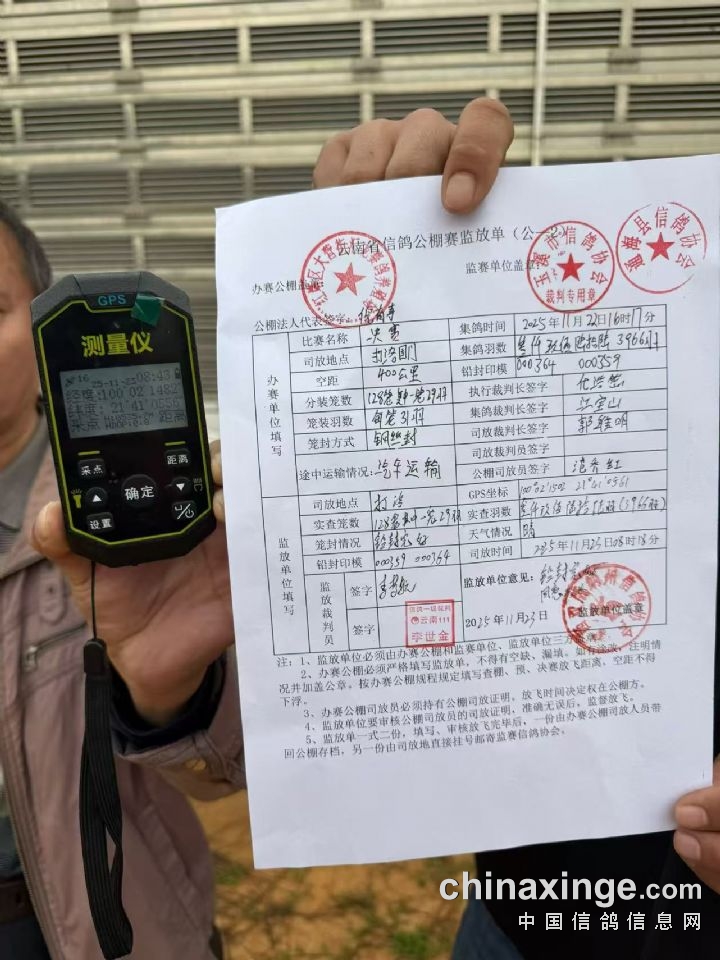 GPS
测量仪
25-11-23 08:43
经度:100 02 1482
纬度: 21 41 0556
采点 距离
采点
距离
确定
设置
云南省信鸽公棚赛监放单（公一
办赛公棚盖
监赛单位盖章
玉溪市信鸽协会
裁判专用章
通海县信鸽协会
公棚法人代表签字
办赛单位填写
比赛名称 决赛 集鸽时间 2025年11月22日16时17分
司放地点 打洛国门 集鸽羽数 3966羽
空距 400公里 铅封印模 000364 000359
分装笼数 执行裁判长签字
笼装羽数 集鸽裁判长签字 江宝山
笼封方式 钢丝封 司放裁判长签字 郭雅明
司放裁判员签字
途中运输情况: 汽车运输 公棚司放员签字
监放单位填写
司放地点 打洛 GPS坐标 100°02'1502 21°41'0561
实查笼数 实查羽数
笼封情况 铅封完好 天气情况 晴
铅封印模 000359 000364 司放时间 2025年11月23日08时18分
监放裁判员
签字
监放单位意见:
监放单位盖章
签字
信鸽一级裁判
云南111
李世金
2025年11月23日
注：1、监放单位必须由办赛公棚和监赛单位、监放单位三方
2、办赛公棚必须严格填写监放单，不得有空缺、漏填。如有涂改，注明情
况并加盖公章。按办赛公棚规程规定填写查棚、预、决赛放飞距离，空距不得
下浮。
3、办赛公棚司放员必须持有公棚司放证明，放飞时间决定权在公棚方。
4、监放单位要审核公棚司放员的司放证明，准确无误后，监督放飞。
5、监放单一式二份，填写、审核放飞完毕后，一份由办赛公棚司放人员带
回公棚存档，另一份由司放地直接挂号邮寄监赛信鸽协会。
chinaxinge.com
中国信鸽信息网